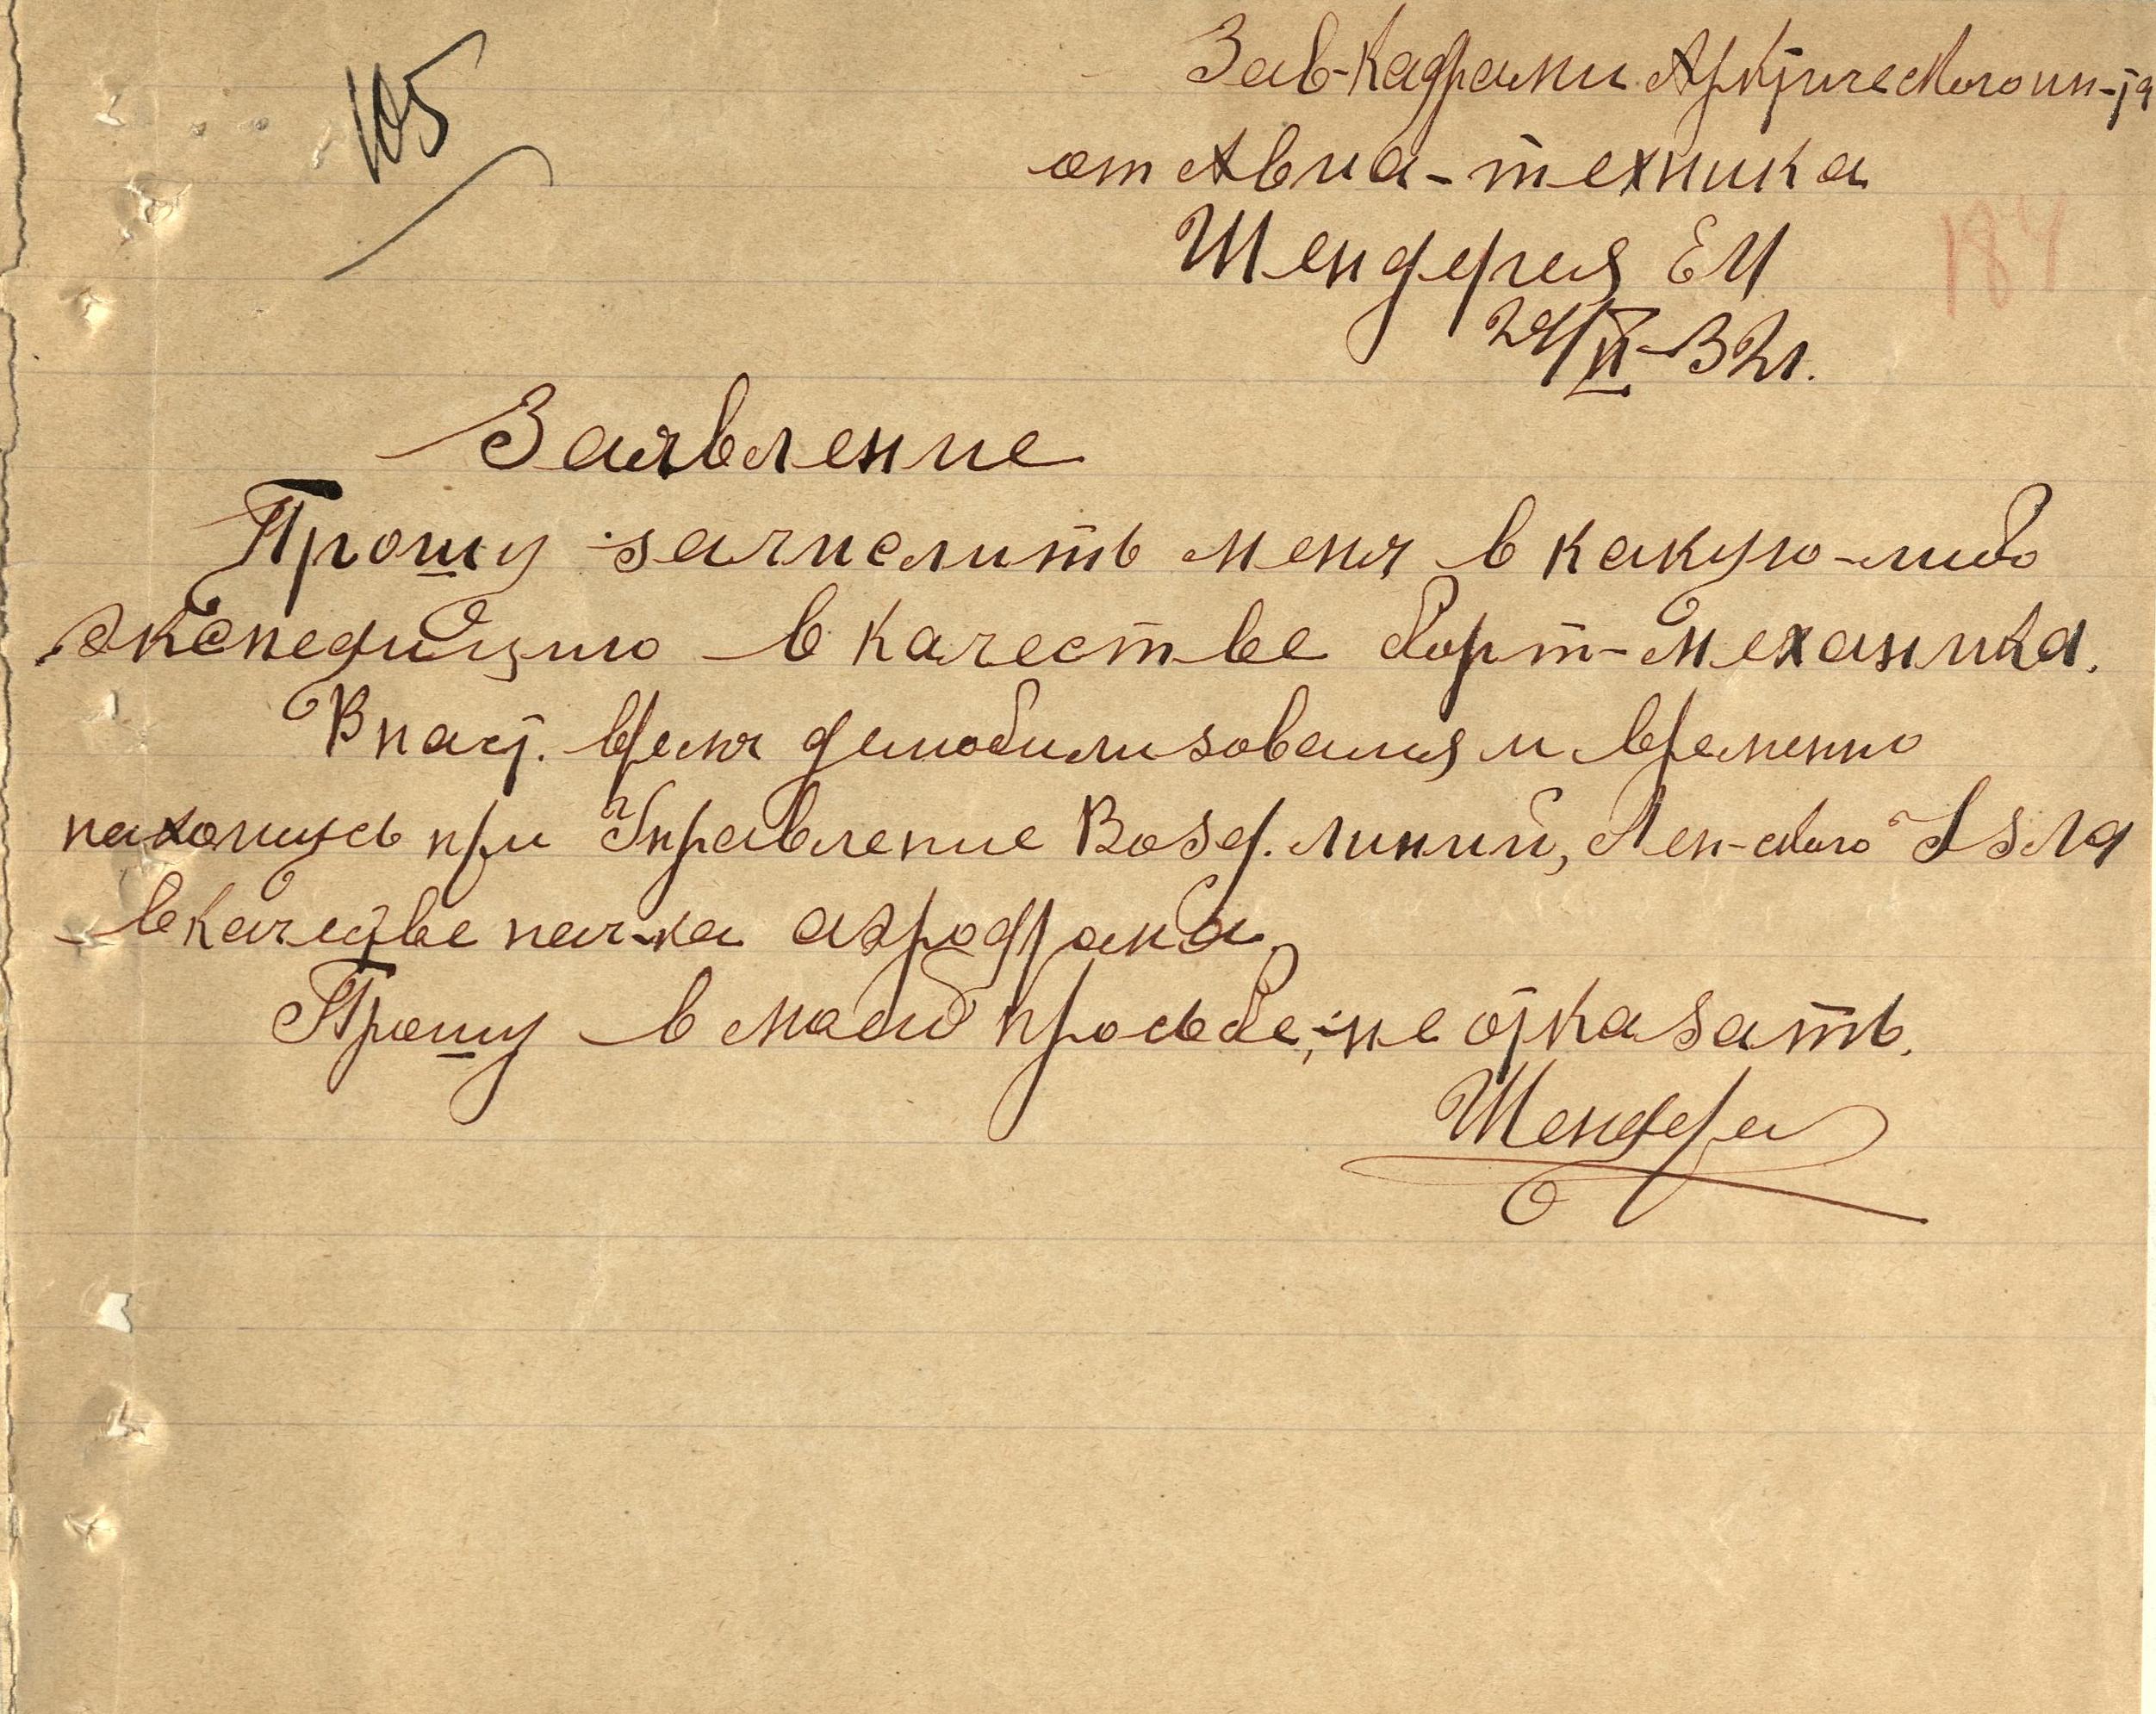 105
Зав-кадрами Арктического ин-та
от Авиа-техника
184
Шендерея ЕИ
Заявление
Прошу зачислить меня в какую-либо
экспедицию в качестве борт-механика.
В наст. время демобилизовался и временно
нахожусь при Управление Возд. линий, Лен-ского
в качестве нач-ка аэродрома.
Прошу в моей просьбе, не отказать.